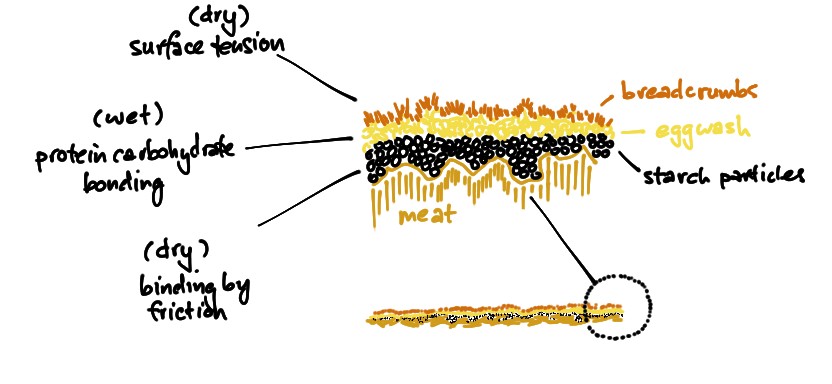 (dry)
surface tension
(wet)
protein carbohydrate
bonding
(dry)
binding by
friction
breadcrumbs
eggwash
starch particles
meat